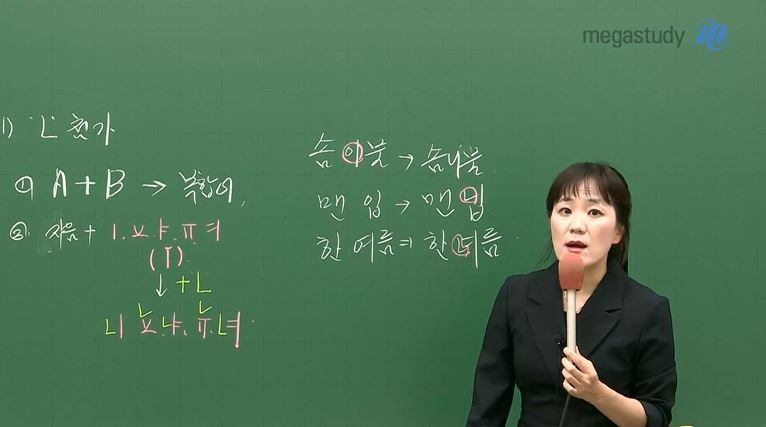 megastudy
1) 'ㄴ' 첨가
① A + B → 복합어,
② 자음 + ㅣ.ㅛ.ㅑ.ㅠ.ㅕ
(j)
↓ + ㄴ
니 뇨.냐.뉴.녀.
솜 이불 → 솜니불.
맨 입 → 맨 닙
한 여름 → 한 녀름.